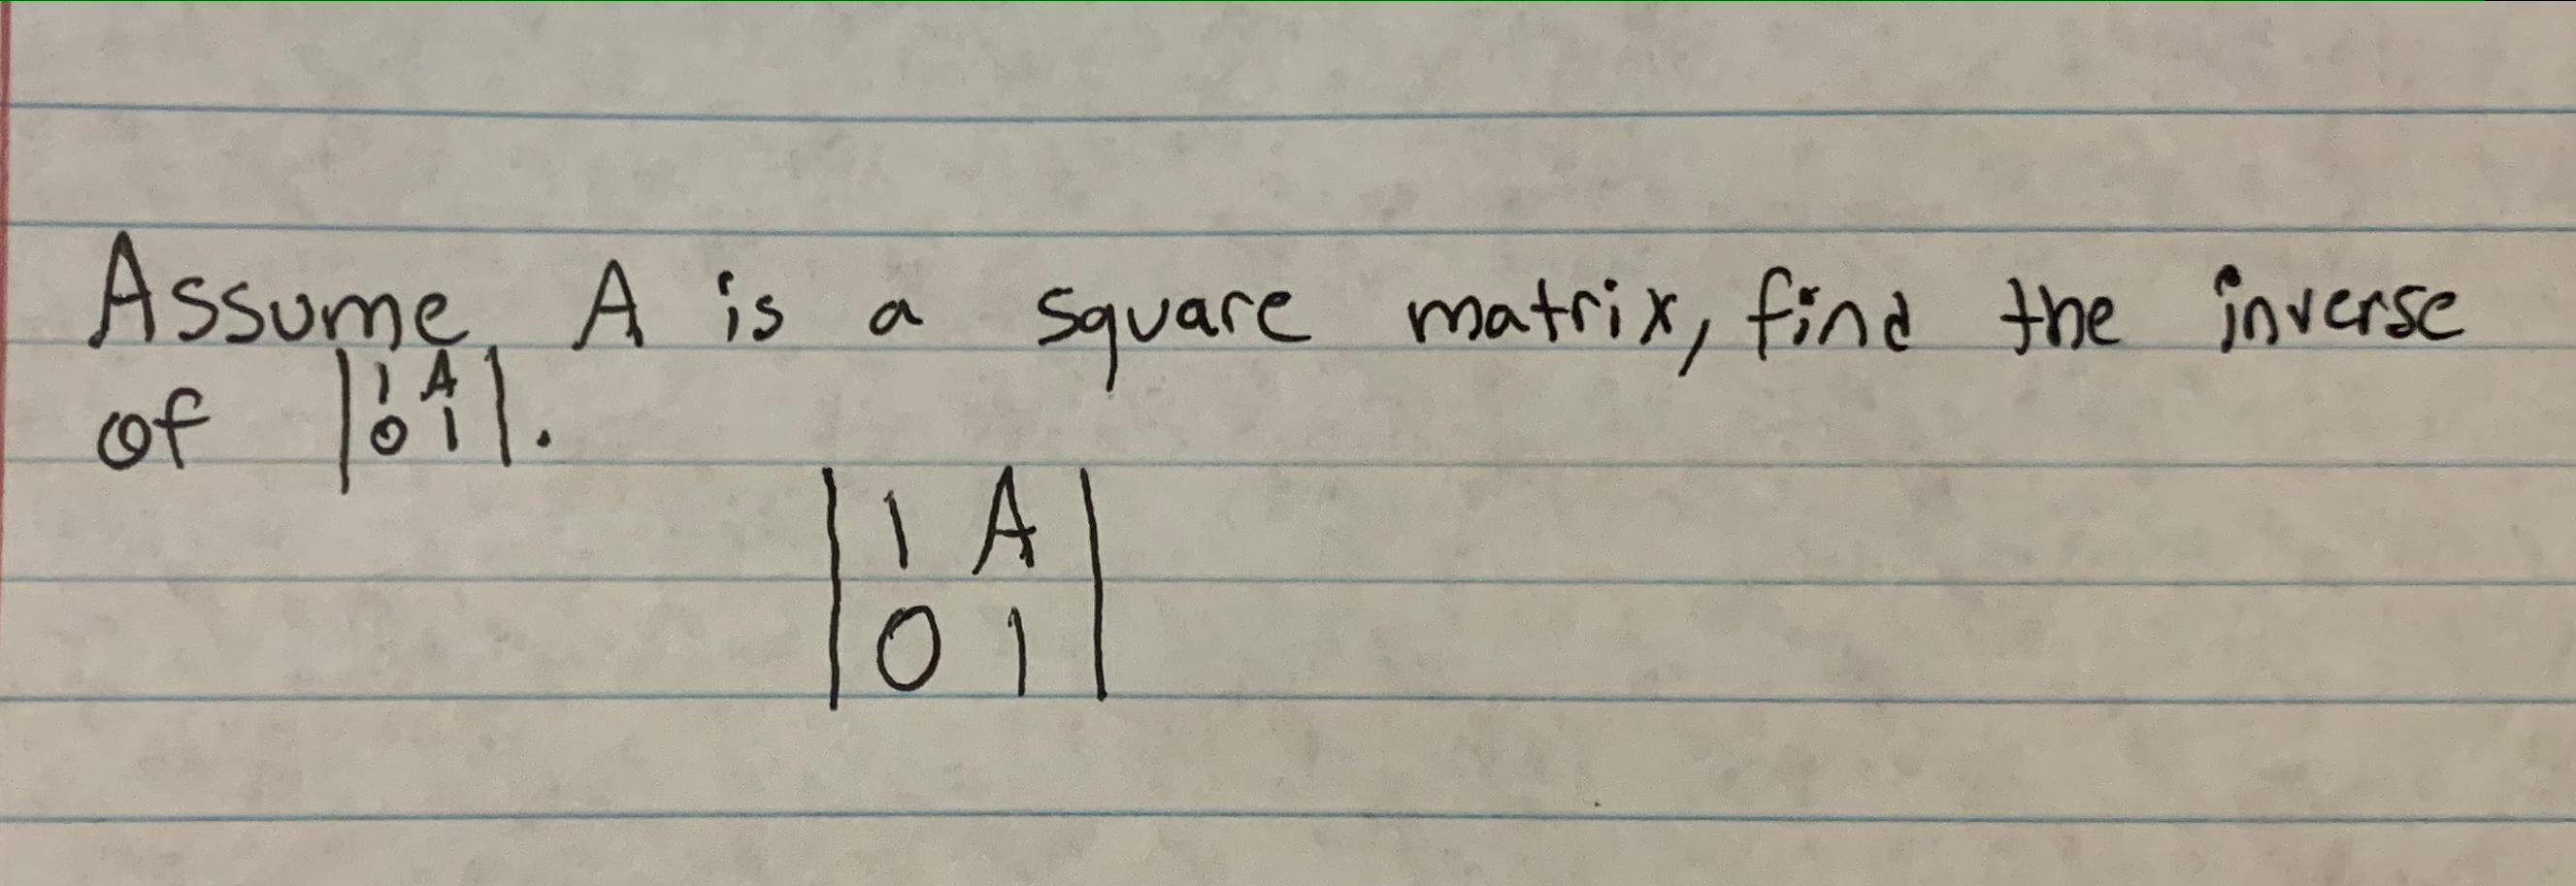 Assume A is a square matrix, find the inverse
of |1 A
0 1|.
|1 A|
|0 1|